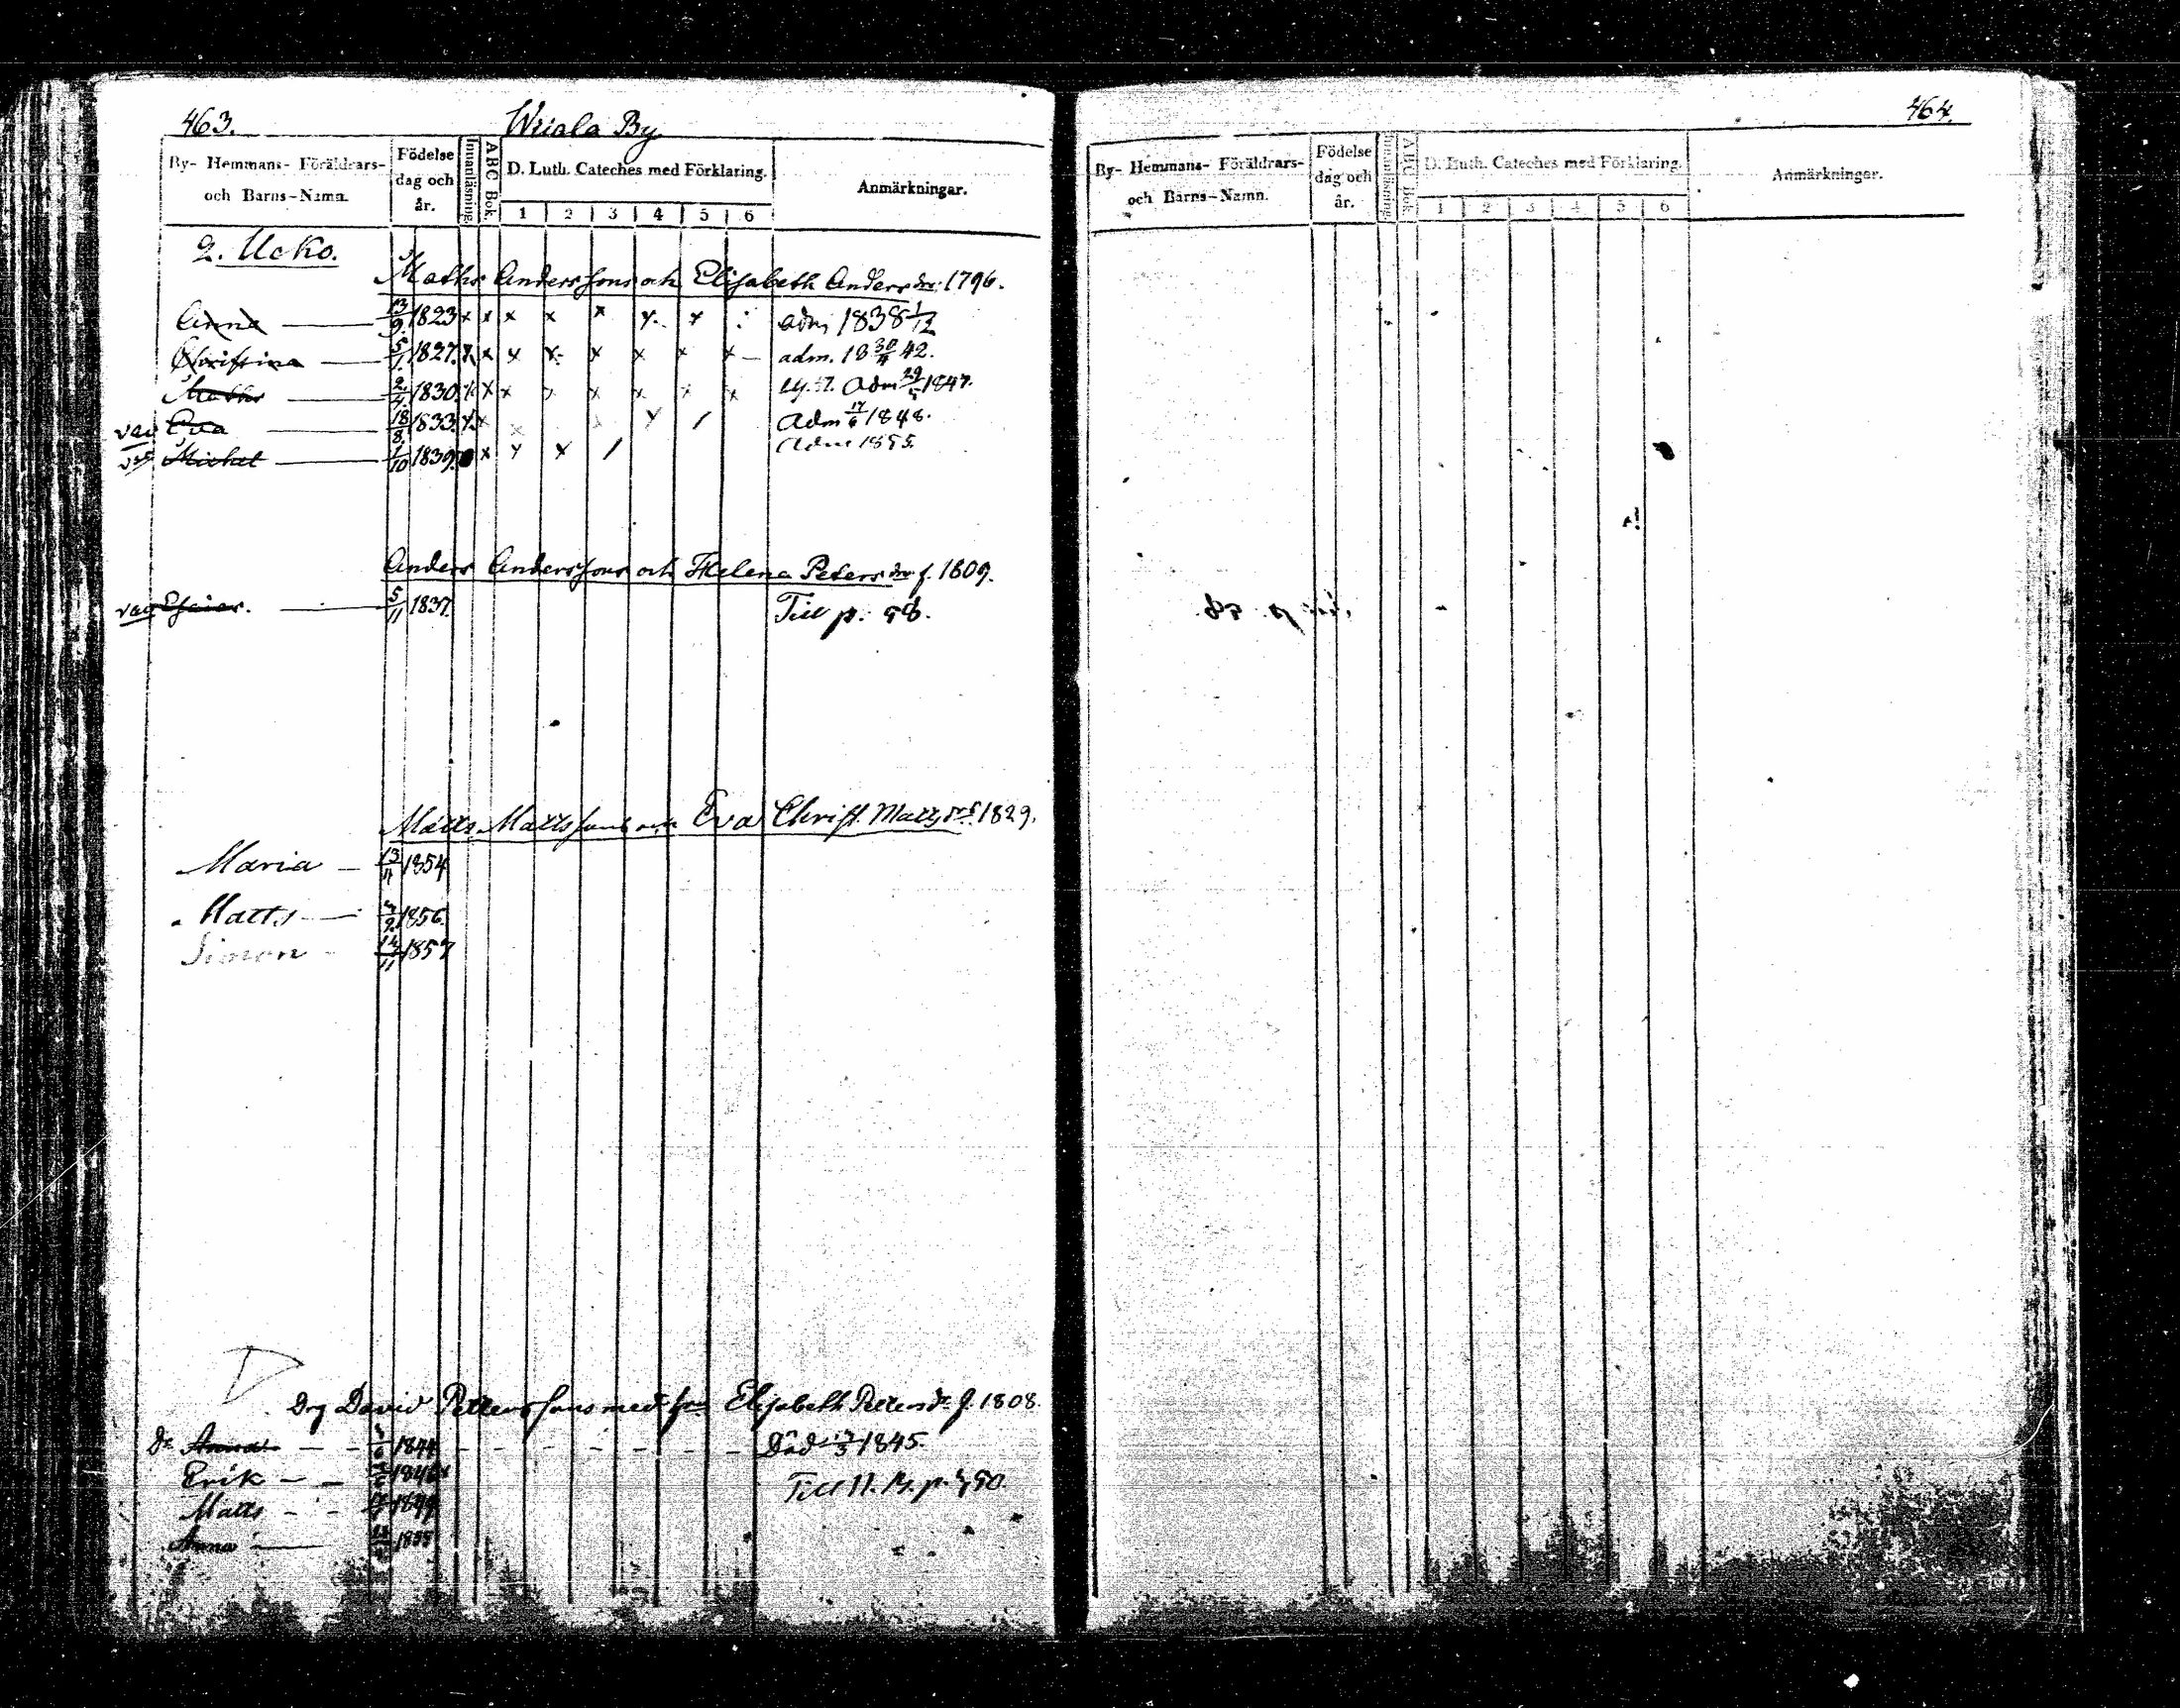 463.
Wiiala By
By- Hemmans- Föräldrars- och Barns-Namn.
Födelse dag och år.
Innanläsning.
ABC Bok.
D. Luth. Cateches med Förklaring.
1 2 3 4 5 6
Anmärkningar.
2. Ucko.
Matts Anderssons och Elisabeth Andersdr. 1796.
Anna 13/9 1823 x x x x x x x adm 1838 1/12
Christina 5/1 1827. x x x x x x x x adm. 18 30/4 42.
Matts 2/4 1830 x x x x x x x x Adm 29/5 1847.
vac Eva 18/8 1833. x x x x / Adm 17/6 1848.
vac Michel 1/10 1839. x x x / Adm 1855.
Anders Anderssons och Helena Petersdr f. 1809.
vac Esaias. 5/11 1837. Till p. 98.
Matts Mattssons och Eva Christ. Mattsdr f. 1829.
Maria 13/11 1854
Matts 1856
Simon 1857
Drg David Petterssons med Elisabeth Petersdr f. 1808.
Anna 1844 Död 1845.
Erik 1846 Till p.
Matts
Anna
464.
By- Hemmans- Föräldrars- och Barns-Namn.
Födelse dag och år.
Innanläsning.
ABC Bok.
D. Luth. Cateches med Förklaring.
1 2 3 4 5 6
Anmärkningar.